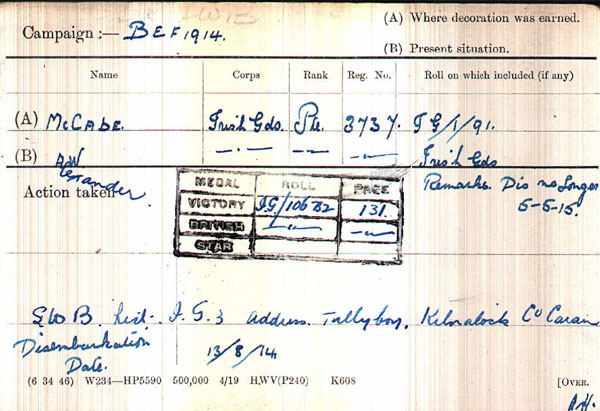 (A) Where decoration was earned.
Campaign :— BEF 1914.
(B) Present situation.
Name Corps Rank Reg. No. Roll on which included (if any)
(A) McCABE. Irish Gds. Pte. 3737. IG/1/91.
(B) " " " Irish Gds
Action taken
Remarks. Dis no Longer
5-5-15.
MEDAL ROLL PAGE
VICTORY I.G/106 B2 131.
BRITISH —"— —"—
STAR
List. I.G.3 address. Tullyboy, Co Cavan
Disembarkation 13/8/14
Date.
(6 34 46) W234—HP5590 500,000 4/19 H,WV(P240) K608 [OVER.